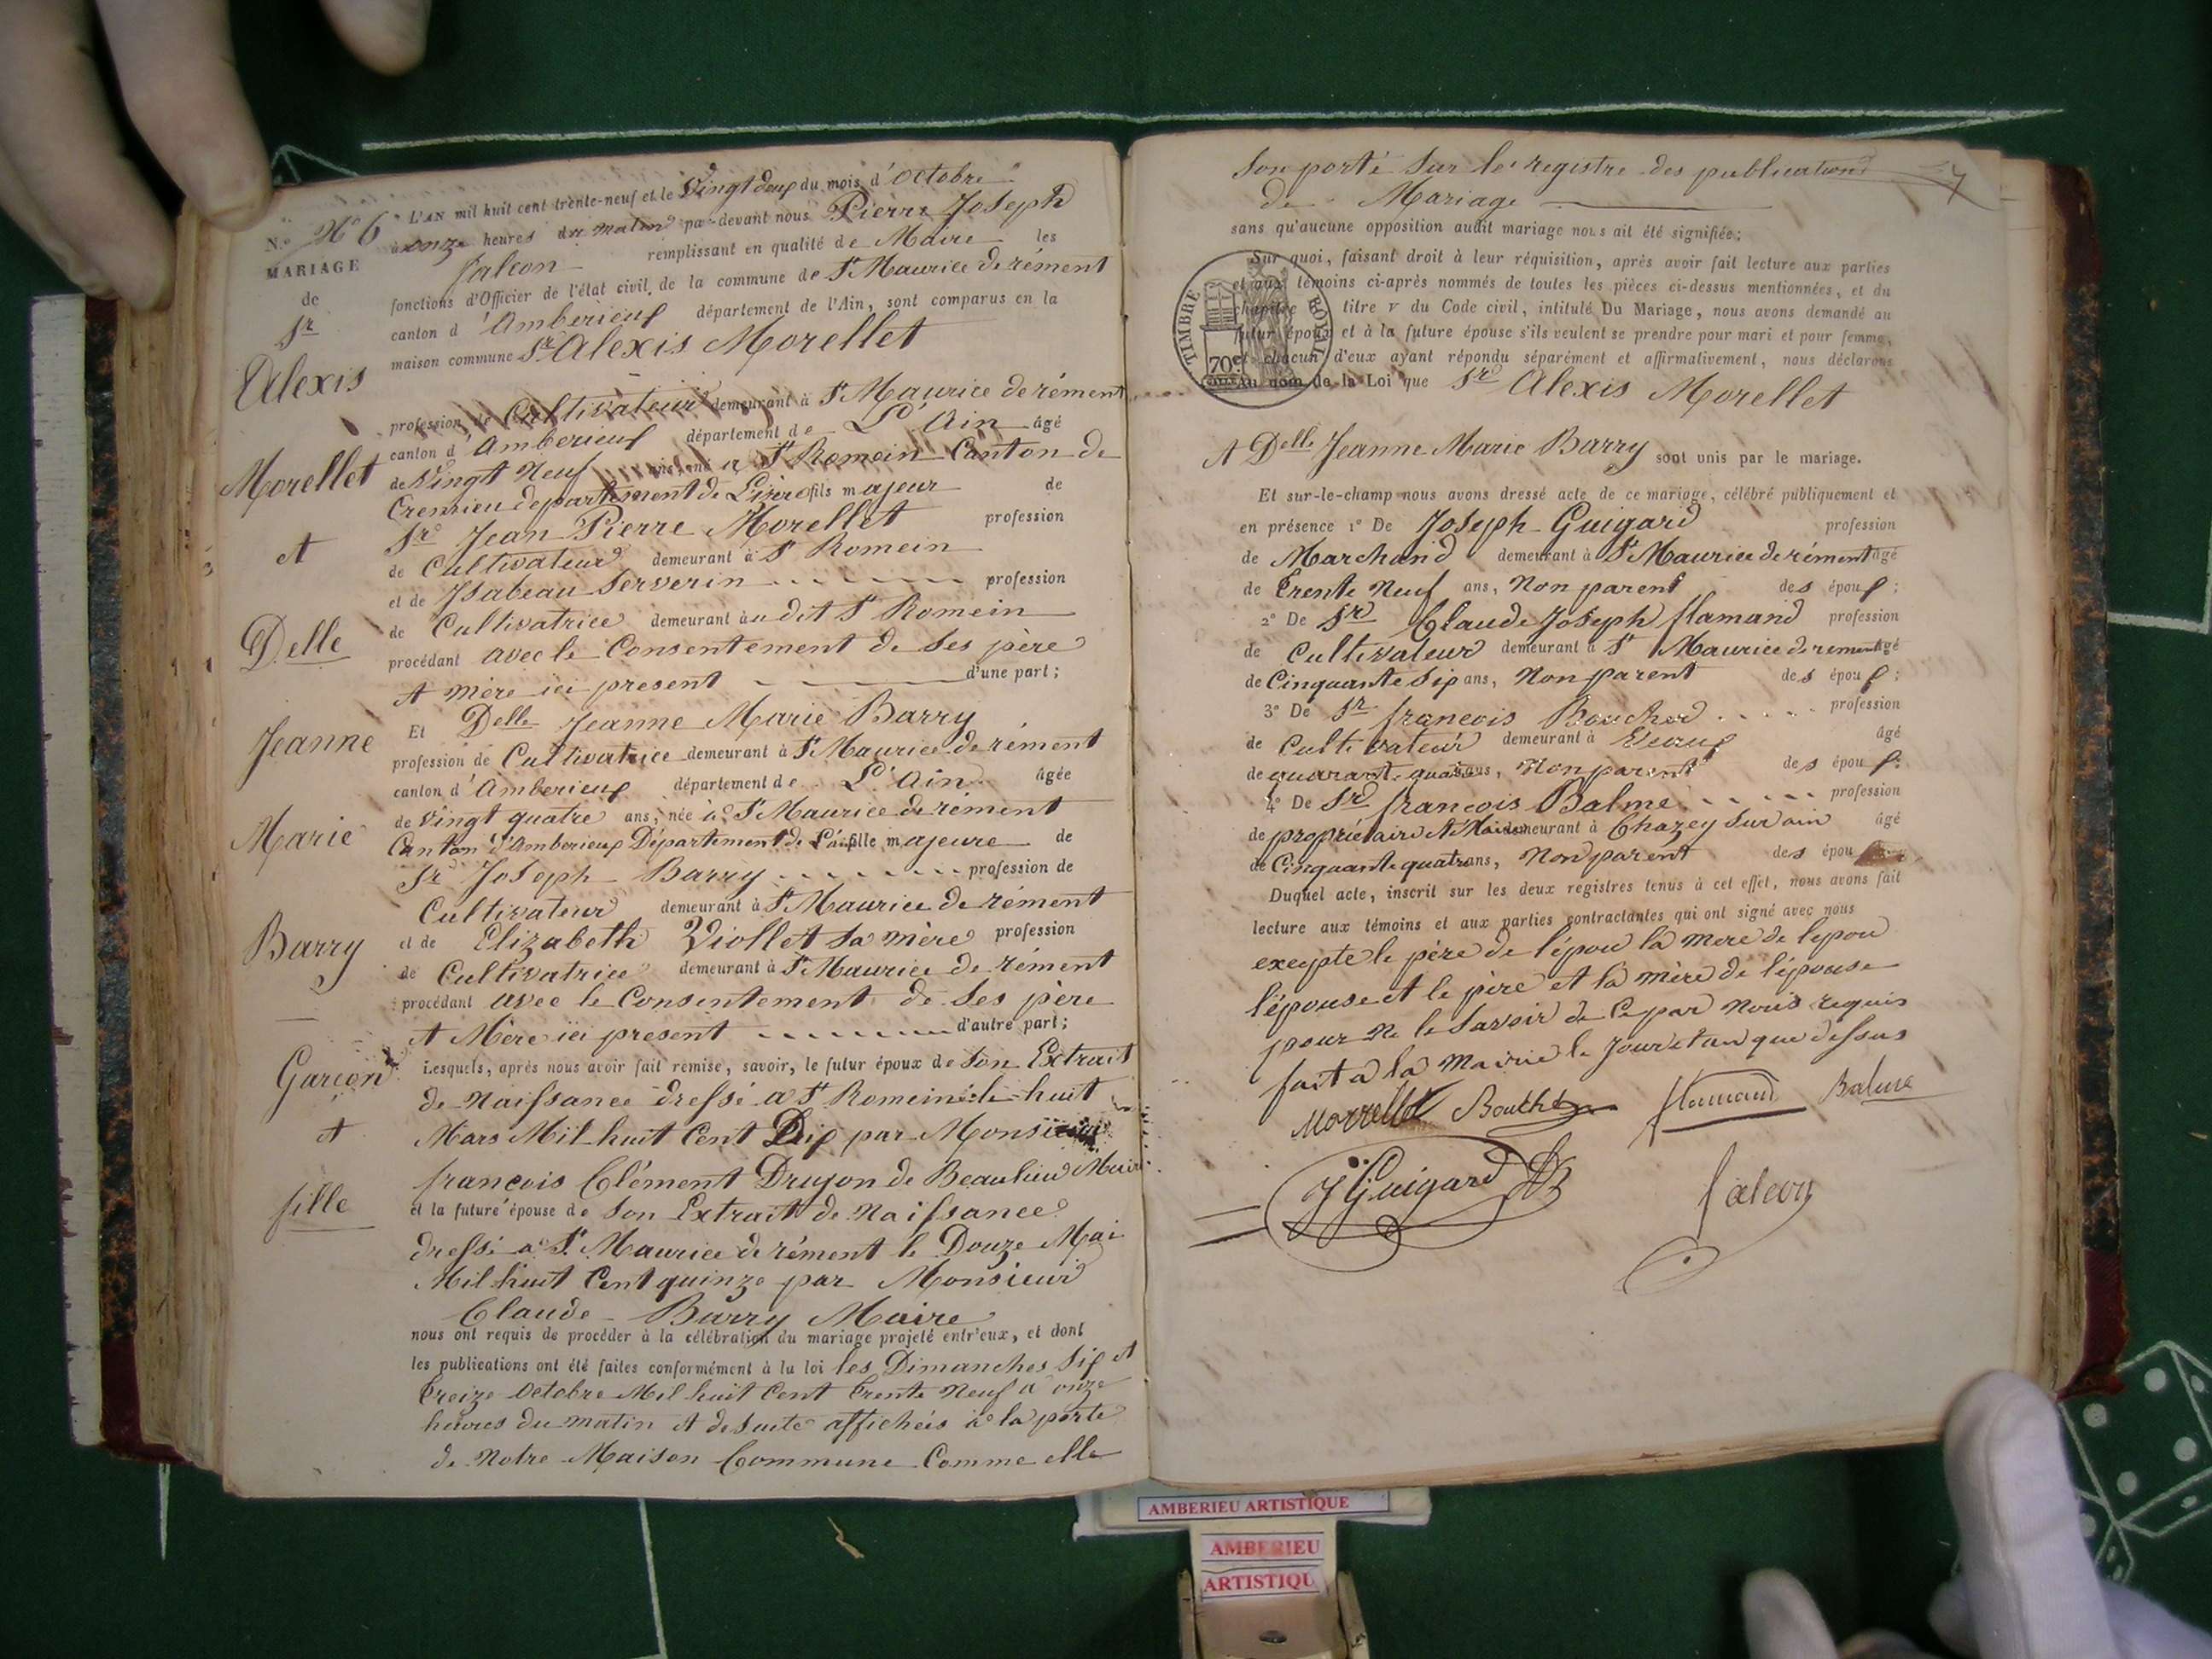 N.º Nº 6
MARIAGE
de
Sr
Alexis
Morellet
et
Delle
Jeanne
Marie
Barry
Garçon
et
fille
L'AN mil huit cent trente-neuf et le Vingt deux du mois d'Octobre
à onze heures du matin par-devant nous Pierre Joseph
falcon remplissant en qualité de Maire les
fonctions d'Officier de l'état civil de la commune de St Maurice de rément
canton d'Amberieux département de l'Ain, sont comparus en la
maison commune Sr Alexis Morellet
profession de Cultivateur demeurant à St Maurice de rément
canton d'Amberieux département de L'Ain âgé
de Vingt Neuf ans, né a St Romein Canton de
Cremieu departement de L'izère fils majeur de
Sr Jean Pierre Morellet profession
de Cultivateur demeurant à St Romein
et de Isabeau Serverin profession
de Cultivatrice demeurant au dit St Romein
procédant avec le Consentement de Ses père
et mère ici present d'une part;
Et Delle Jeanne Marie Barry
profession de Cultivatrice demeurant à St Maurice de rément
canton d'Amberieux département de L'Ain âgée
de Vingt quatre ans, née à St Maurice de rément
Canton d'Amberieux Département de L'ain fille majeure de
Sr Joseph Barry profession de
Cultivateur demeurant à St Maurice de rément
et de Elizabeth Viollet Sa mère profession
de Cultivatrice demeurant à St Maurice de rément
procédant avec le Consentement de Ses père
et Mère ici present d'autre part;
Lesquels, après nous avoir fait remise, savoir, le futur époux de Son Extrait
de Naissance dressé a St Romein le huit
Mars Mil huit Cent Dix par Monsieur
francois Clément Drujon de Beaulieu Maire
et la future épouse de Son Extrait de Naissance
dressé a St Maurice de rément le Douze Mai
Mil huit Cent quinze par Monsieur
Claude Barry Maire
nous ont requis de procéder à la célébration du mariage projeté entr'eux, et dont
les publications ont été faites conformément à la loi les Dimanches Six et
treize Octobre Mil huit Cent trente Neuf a onze
heures du matin et de Suite affichées à la porte
de Notre Maison Commune Comme elle
Son porté Sur le registre des publications
de Mariage
7
sans qu'aucune opposition audit mariage nous ait été signifiée;
Sur quoi, faisant droit à leur réquisition, après avoir fait lecture aux parties
et aux témoins ci-après nommés de toutes les pièces ci-dessus mentionnées, et du
chapitre titre V du Code civil, intitulé Du Mariage, nous avons demandé au
futur époux et à la future épouse s'ils veulent se prendre pour mari et pour femme,
et chacun d'eux ayant répondu séparément et affirmativement, nous déclarons
au nom de la Loi que Sr Alexis Morellet
TIMBRE ROYAL
70c
Et Delle Jeanne Marie Barry sont unis par le mariage.
Et sur-le-champ nous avons dressé acte de ce mariage, célébré publiquement et
en présence 1º De Joseph Guigard profession
de Marchand demeurant à St Maurice de rément âgé
de trente Neuf ans, Non parent des époux;
2º De Sr Claude Joseph flamand profession
de Cultivateur demeurant à St Maurice de rement âgé
de Cinquante Six ans, Non parent des époux;
3º De Sr francois Boucher profession
de Cultivateur demeurant à âgé
de quarante quatre ans, Non parent des époux;
4º De Sr francois Balme profession
de propriétaire et Maire demeurant à Chazey Sur ain âgé
de Cinquante quatre ans, Non parent des époux
Duquel acte, inscrit sur les deux registres tenus à cet effet, nous avons fait
lecture aux témoins et aux parties contractantes qui ont signé avec nous
exepte le père de l'épou la mere de lepou
l'épouse et le père et la mère de l'épouse
pour Ne le Savoir de Ce par Nous requis
fait a la Mairie le Jour et an que dessus
Morrellet Bouché flamand Balme
J Guigard falcon
AMBERIEU ARTISTIQUE
AMBERIEU
ARTISTIQU